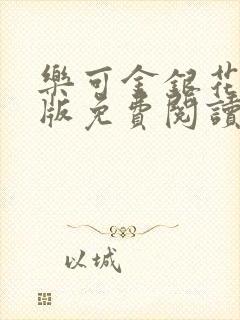 樂可金銀花
版免費閱讀
以城